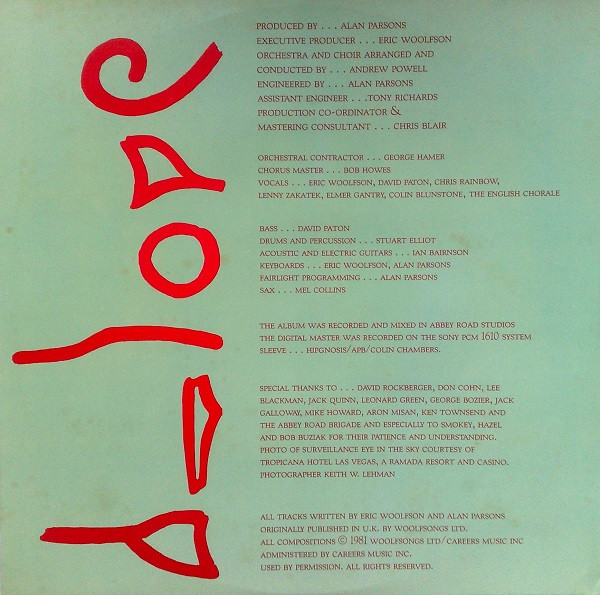 PRODUCED BY . . . ALAN PARSONS
EXECUTIVE PRODUCER . . . ERIC WOOLFSON
ORCHESTRA AND CHOIR ARRANGED AND
CONDUCTED BY . . . ANDREW POWELL
ENGINEERED BY . . . ALAN PARSONS
ASSISTANT ENGINEER . . .TONY RICHARDS
PRODUCTION CO-ORDINATOR &
MASTERING CONSULTANT . . . CHRIS BLAIR
ORCHESTRAL CONTRACTOR . . . GEORGE HAMER
CHORUS MASTER . . . BOB HOWES
VOCALS . . . ERIC WOOLFSON, DAVID PATON, CHRIS RAINBOW,
LENNY ZAKATEK, ELMER GANTRY, COLIN BLUNSTONE, THE ENGLISH CHORALE
BASS . . . DAVID PATON
DRUMS AND PERCUSSION . . . STUART ELLIOT
ACOUSTIC AND ELECTRIC GUITARS . . . IAN BAIRNSON
KEYBOARDS . . . ERIC WOOLFSON, ALAN PARSONS
FAIRLIGHT PROGRAMMING . . . ALAN PARSONS
SAX . . . MEL COLLINS
THE ALBUM WAS RECORDED AND MIXED IN ABBEY ROAD STUDIOS
THE DIGITAL MASTER WAS RECORDED ON THE SONY PCM 1610 SYSTEM
SLEEVE . . . HIPGNOSIS/APB/COLIN CHAMBERS.
SPECIAL THANKS TO . . . DAVID ROCKBERGER, DON COHN, LEE
BLACKMAN, JACK QUINN, LEONARD GREEN, GEORGE BOZIER, JACK
GALLOWAY, MIKE HOWARD, ARON MISAN, KEN TOWNSEND AND
THE ABBEY ROAD BRIGADE AND ESPECIALLY TO SMOKEY, HAZEL
AND BOB BUZIAK FOR THEIR PATIENCE AND UNDERSTANDING.
PHOTO OF SURVEILLANCE EYE IN THE SKY COURTESY OF
TROPICANA HOTEL LAS VEGAS, A RAMADA RESORT AND CASINO.
PHOTOGRAPHER KEITH W. LEHMAN
ALL TRACKS WRITTEN BY ERIC WOOLFSON AND ALAN PARSONS
ORIGINALLY PUBLISHED IN U.K. BY WOOLFSONGS LTD.
ALL COMPOSITIONS © 1981 WOOLFSONGS LTD/CAREERS MUSIC INC
ADMINISTERED BY CAREERS MUSIC INC.
USED BY PERMISSION. ALL RIGHTS RESERVED.